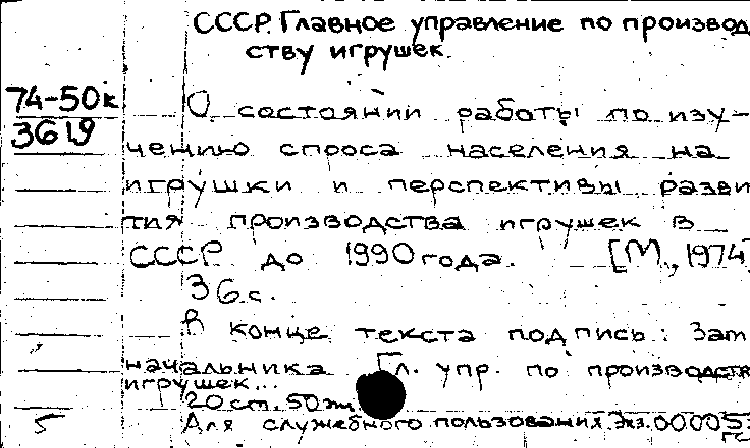 СССР. Главное управление по производ
ству игрушек.
74-50к
3619
О состоянии работы по изу-
чению спроса населения на
игрушки и перспективы разви
тия производства игрушек в
СССР до 1990 года. [М., 1974
36 с.
В конце текста подпись: Зам
начальника Гл. упр. по производств
игрушек...
20 ст. 50
Для служебного пользования. Экз. 00005
5